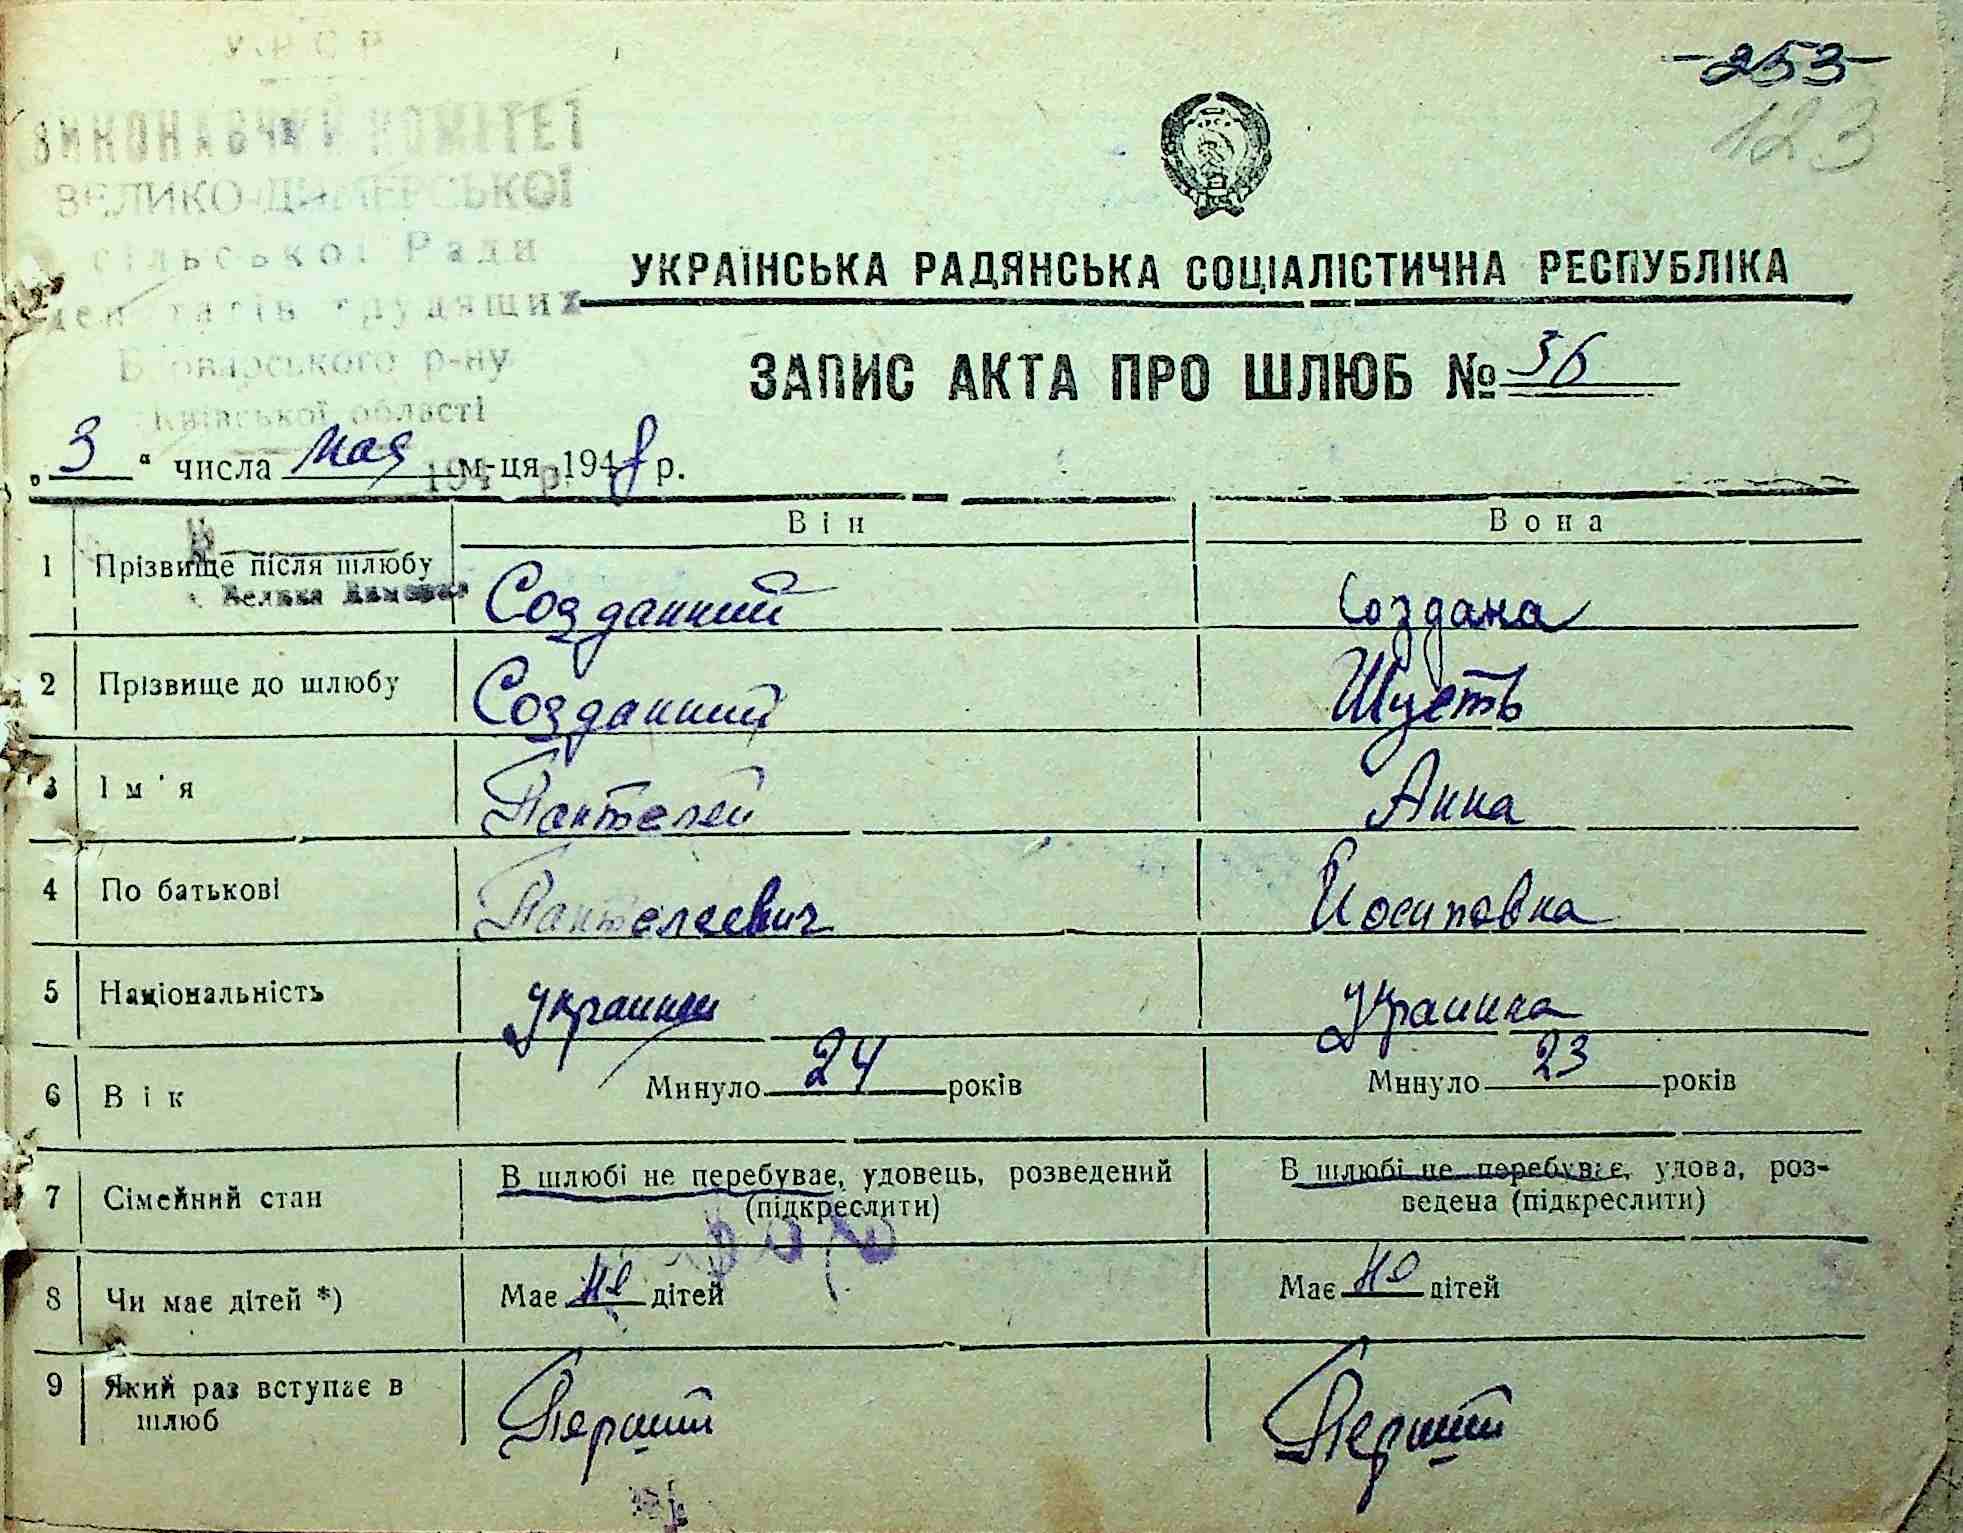 УРСР
-253-
123
ВИКОНАВЧИЙ КОМІТЕТ
ВЕЛИКО-ДИМЕРСЬКОЇ
сільської Ради
депутатів трудящих
Броварського р-ну
Київської області
УКРАЇНСЬКА РАДЯНСЬКА СОЦІАЛІСТИЧНА РЕСПУБЛІКА
ЗАПИС АКТА ПРО ШЛЮБ № 36
„3“ числа мая м-ця 1948 р.
194 р.
Він Вона
1 Прізвище після шлюбу Созданний Создана
с. Велика Димерка
2 Прізвище до шлюбу Созданний Шусть
3 Ім'я Пантелей Анна
4 По батькові Пантелеевич Иосиповна
5 Національність Украинец Украинка
6 Вік Минуло 24 років Минуло 23 років
7 Сімейний стан В шлюбі не перебуває, удовець, розведений (підкреслити) В шлюбі не перебуває, удова, роз-
ведена (підкреслити)
8 Чи має дітей *) Має не дітей Має не дітей
9 Який раз вступає в шлюб Перший Перший